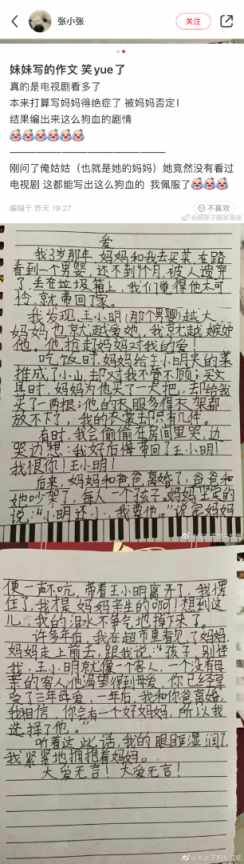 张小张
关注
妹妹写的作文 笑yue了
真的是电视剧看多了
本来打算写妈妈得绝症了 被妈妈否定！
结果编出来这么狗血的剧情
刚问了俺姑姑（也就是她的妈妈）她竟然没有看过
电视剧 这都能写出这么狗血的 我佩服了
编辑于 昨天 19:27
不喜欢
爱
我3岁那年，妈妈和我去买菜，在路
看到一个男婴，还不到1个月，被人遗弃
了，丢在垃圾箱上，我们觉得他太可
怜，就带回了家。
我发现，王小明（那个男婴）越大，
妈妈也就越爱他，我就越嫉妒
他，他抢走妈妈对我的爱。
吃饭时，妈妈给王小明夹的菜
推成了小山，却对我不管不顾；买文
具时，妈妈为他买了一大把，却给我
买了一两根；他的衣服多得衣架都
放不下了，我的衣裳却只有几件。
有时，我会偷偷在房间里哭，边
哭边想：我好后悔带回了王小明！
我恨你！王小明！
后来，妈妈和爸爸离婚了，爸爸和
她吵架了，每人一个孩子。妈妈坚定的
说：“小明还小，我要他。”说完妈妈
便一声不吭，带着王小明离开了，我愣
住了，我才是妈妈亲生的啊！想到这
儿，我的泪水不争气地掉下来了。
许多年后，我在超市里看见了妈妈，
妈妈走上前去，跟我说：“孩子，别怪
我，王小明就像一个客人，一个没有母
爱的客人，他渴望得到母爱，你已经享
受了三年母爱，一年后，我和你爸离婚，
我相信，你会有一个好妈妈，所以我
选择了他。”
听着这些话，我的眼眶湿润了，
我紧紧地拥抱着妈妈。
大爱无言！大爱无言！